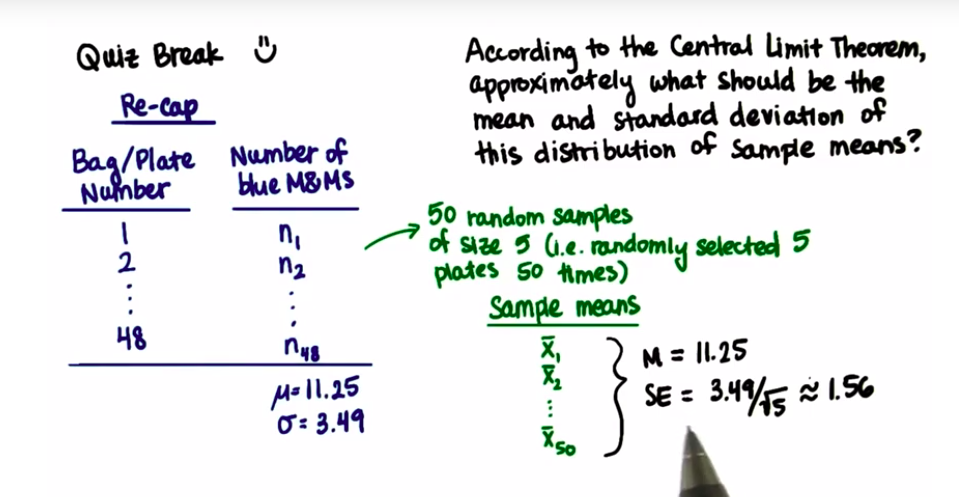 Quiz Break
Re-cap
Bag/Plate
Number
Number of
blue M&Ms
1
n₁
2
n₂
48
n₄₈
μ=11.25
σ=3.49
According to the Central Limit Theorem,
approximately what should be the
mean and standard deviation of
this distribution of sample means?
50 random samples
of size 5 (i.e. randomly selected 5
plates 50 times)
Sample means
x̄₁
x̄₂
⋮
x̄₅₀
M = 11.25
SE = 3.49/√5 ≈ 1.56